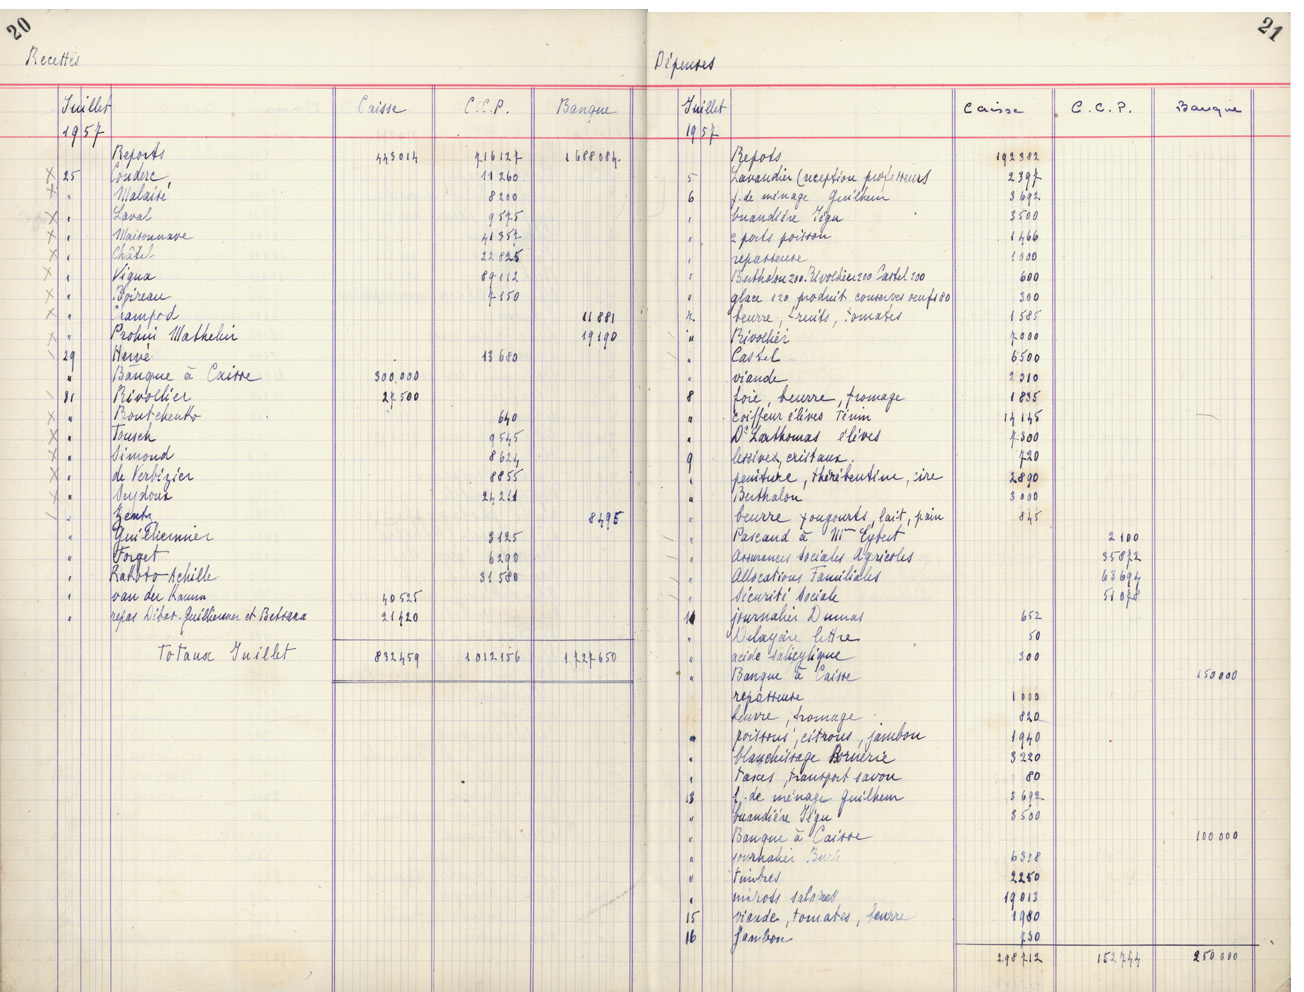 20
Recettes
Juillet Caisse C.C.P. Banque
1957
Reports 443014 716127 1688084.
25 Couderc 11260
" Malaisé 8200
" Laval 9575
" Maisonnave 41357
" Châtel 22825
" Vigna 89112
" Boireau 7150
" Crampod 11881
" Prolini Mathelin 19190
29 Hervé 13680
" Banque à Caisse 300.000
31 Rivollier 27500
" Routchenko 640
" Tousch 9545
" Simond 8624
" de Verbizier 8855
" Suydoux 24211
" Zenta 8495
" Guilhermier 3125
" Forget 6290
" Rakoto Achille 31580
" van der Kamm 40525
" repas Dibar. Guilhermier et Betsara 21420
Totaux Juillet 832459 1012156 1727650
21
Dépenses
Juillet Caisse C.C.P. Banque
1957
Repots 192382
5 Lavandier (reception professeurs 2397
6 f. de ménage Guilhem 3692
" buandière Tégu 3500
" 2 ports poisson 1466
" repasseuse 1000
" Berthalon 200. Rivollier 200 Castel 200 600
" glace 120 produit conserves oeufs 80 300
7 beurre, fruits, tomates 1585
" Rivollier 7000
" Castel 6500
" viande 2310
8 foie, beurre, fromage 1835
" coiffeur élèves Ténin 14145
" Dr Lasthomas élèves 7300
9 lessives, cristaux. 720
" peinture, thérébentine, cire 2890
" Berthalon 3000
" beurre yougourts, lait, pain 845
" Pascaud à Mme Eybert 2100
" Assurances Sociales Agricoles 35872
" Allocations Familiales 63694
" Sécurité Sociale 51078
10 journalier Dumas 652
" Delayaire lettre 50
" acide salicylique 300
" Banque à Caisse 150000
repasseuse 1000
beurre, fromage 820
" poissons, citrons, jambon 1940
" blanchissage Bornerie 3220
" taxes, transport savon 80
13 f. de ménage Guilhem 3692
" buandière Tégu 3500
" Banque à Caisse 100000
" journalier 6338
" timbres 2250
" mirods salaires 19013
15 viande, tomates, beurre 1980
16 Jambon 730
298712 152744 250000